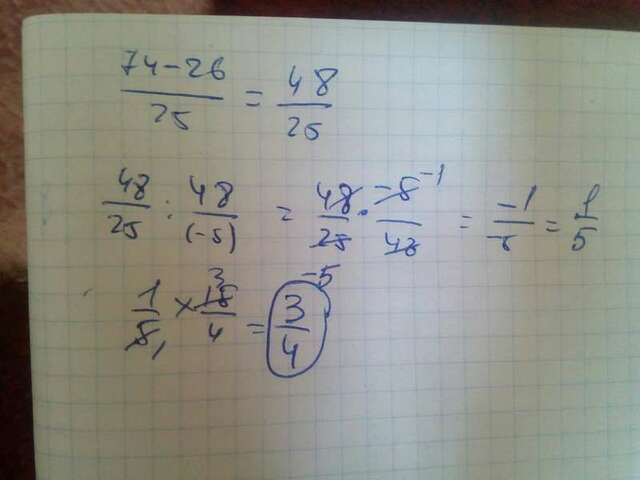 74-26/25 = 48/25
48/25 : 48/(-5) = 48/25 · -5 -1/48 = -1/5 = 1/5
1/5 1 × 15 3/4 = 3/4 -5